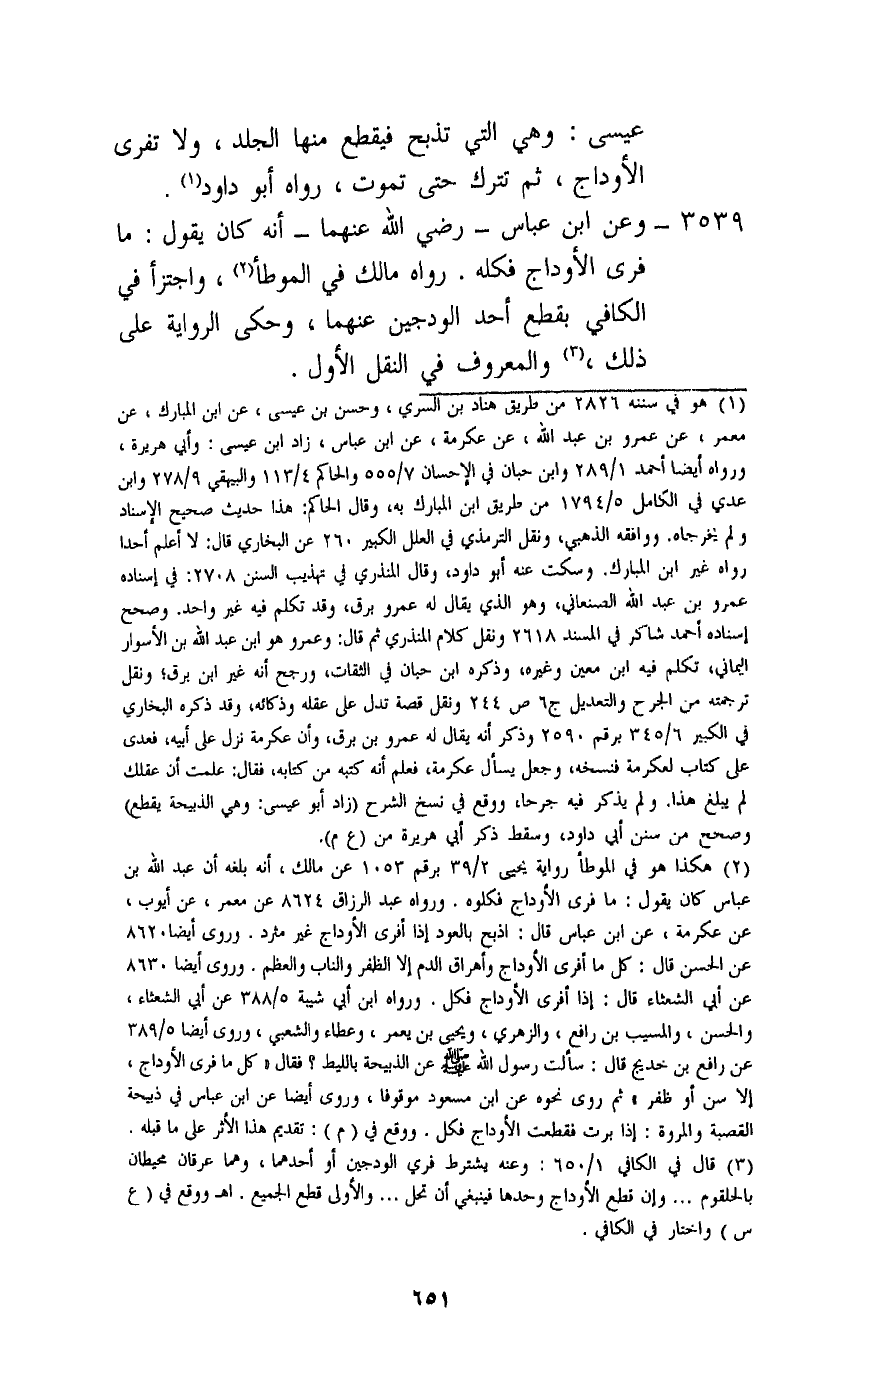 عيسى : وهي التي تذبح فيقطع منها الجلد ، ولا تفرى
الأوداج ، ثم تترك حتى تموت ، رواه أبو داود(١) .
٣٥٣٩ – وعن ابن عباس – رضي الله عنهما – أنه كان يقول : ما
فرى الأوداج فكله . رواه مالك في الموطأ(٢) ، واجتزأ في
الكافي بقطع أحد الودجين عنهما ، وحكى الرواية على
ذلك ،(٣) والمعروف في النقل الأول .
(١) هو في سننه ٢٨٢٦ من طريق هناد بن السري ، وحسن بن عيسى ، عن ابن المبارك ، عن
معمر ، عن عمرو بن عبد الله ، عن عكرمة ، عن ابن عباس ، زاد ابن عيسى : وأبي هريرة ،
ورواه أيضا أحمد ٢٨٩/١ وابن حبان في الإحسان ٥٥٥/٧ والحاكم ١١٣/٤ والبيهقي ٢٧٨/٩ وابن
عدي في الكامل ١٧٩٤/٥ من طريق ابن المبارك به، وقال الحاكم: هذا حديث صحيح الإسناد
ولم يخرجاه. ووافقه الذهبي، ونقل الترمذي في العلل الكبير ٢٦٠ عن البخاري قال: لا أعلم أحدا
رواه غير ابن المبارك. وسكت عنه أبو داود، وقال المنذري في تهذيب السنن ٢٧٠٨: في إسناده
عمرو بن عبد الله الصنعاني، وهو الذي يقال له عمرو برق، وقد تكلم فيه غير واحد. وصحح
إسناده أحمد شاكر في المسند ٢٦١٨ ونقل كلام المنذري ثم قال: وعمرو هو ابن عبد الله بن الأسوار
اليماني، تكلم فيه ابن معين وغيره، وذكره ابن حبان في الثقات، ورجح أنه غير ابن برق؛ ونقل
ترجمته من الجرح والتعديل ج٦ ص ٢٤٤ ونقل قصة تدل على عقله وذكائه، وقد ذكره البخاري
في الكبير ٣٤٥/٦ برقم ٢٥٩٠ وذكر أنه يقال له عمرو بن برق، وأن عكرمة نزل على أبيه، فعدى
على كتاب لعكرمة فنسخه، وجعل يسأل عكرمة، فعلم أنه كتبه من كتابه، فقال: علمت أن عقلك
لم يبلغ هذا. ولم يذكر فيه جرحا، ووقع في نسخ الشرح (زاد أبو عيسى: وهي الذبيحة يقطع)
وصحح من سنن أبي داود، وسقط ذكر أبي هريرة من (ع م).
(٢) هكذا هو في الموطأ رواية يحيى ٣٩/٢ برقم ١٠٥٣ عن مالك ، أنه بلغه أن عبد الله بن
عباس كان يقول : ما فرى الأوداج فكلوه . ورواه عبد الرزاق ٨٦٢٤ عن معمر ، عن أيوب ،
عن عكرمة ، عن ابن عباس قال : اذبح بالعود إذا أفرى الأوداج غير مثرد . وروى أيضا ٨٦٢٠
عن الحسن قال : كل ما أفرى الأوداج وأهراق الدم إلا الظفر والناب والعظم . وروى أيضا ٨٦٣٠
عن أبي الشعثاء قال : إذا أفرى الأوداج فكل . ورواه ابن أبي شيبة ٣٨٨/٥ عن أبي الشعثاء ،
والحسن ، والمسيب بن رافع ، والزهري ، ويحيى بن يعمر ، وعطاء والشعبي ، وروى أيضا ٣٨٩/٥
عن رافع بن خديج قال : سألت رسول الله ﷺ عن الذبيحة بالليط ؟ فقال « كل ما فرى الأوداج ،
إلا سن أو ظفر » ثم روى نحوه عن ابن مسعود موقوفا ، وروى أيضا عن ابن عباس في ذبيحة
القصبة والمروة : إذا برت فقطعت الأوداج فكل . ووقع في ( م ) : تقديم هذا الأثر على ما قبله .
(٣) قال في الكافي ٦٥٠/١ : وعنه يشترط فري الودجين أو أحدهما ، وهما عرقان محيطان
بالحلقوم ... وإن قطع الأوداج وحدها فينبغي أن تحل ... والأولى قطع الجميع . اهـ ووقع في ( ع
س ) واختار في الكافي .
٦٥١